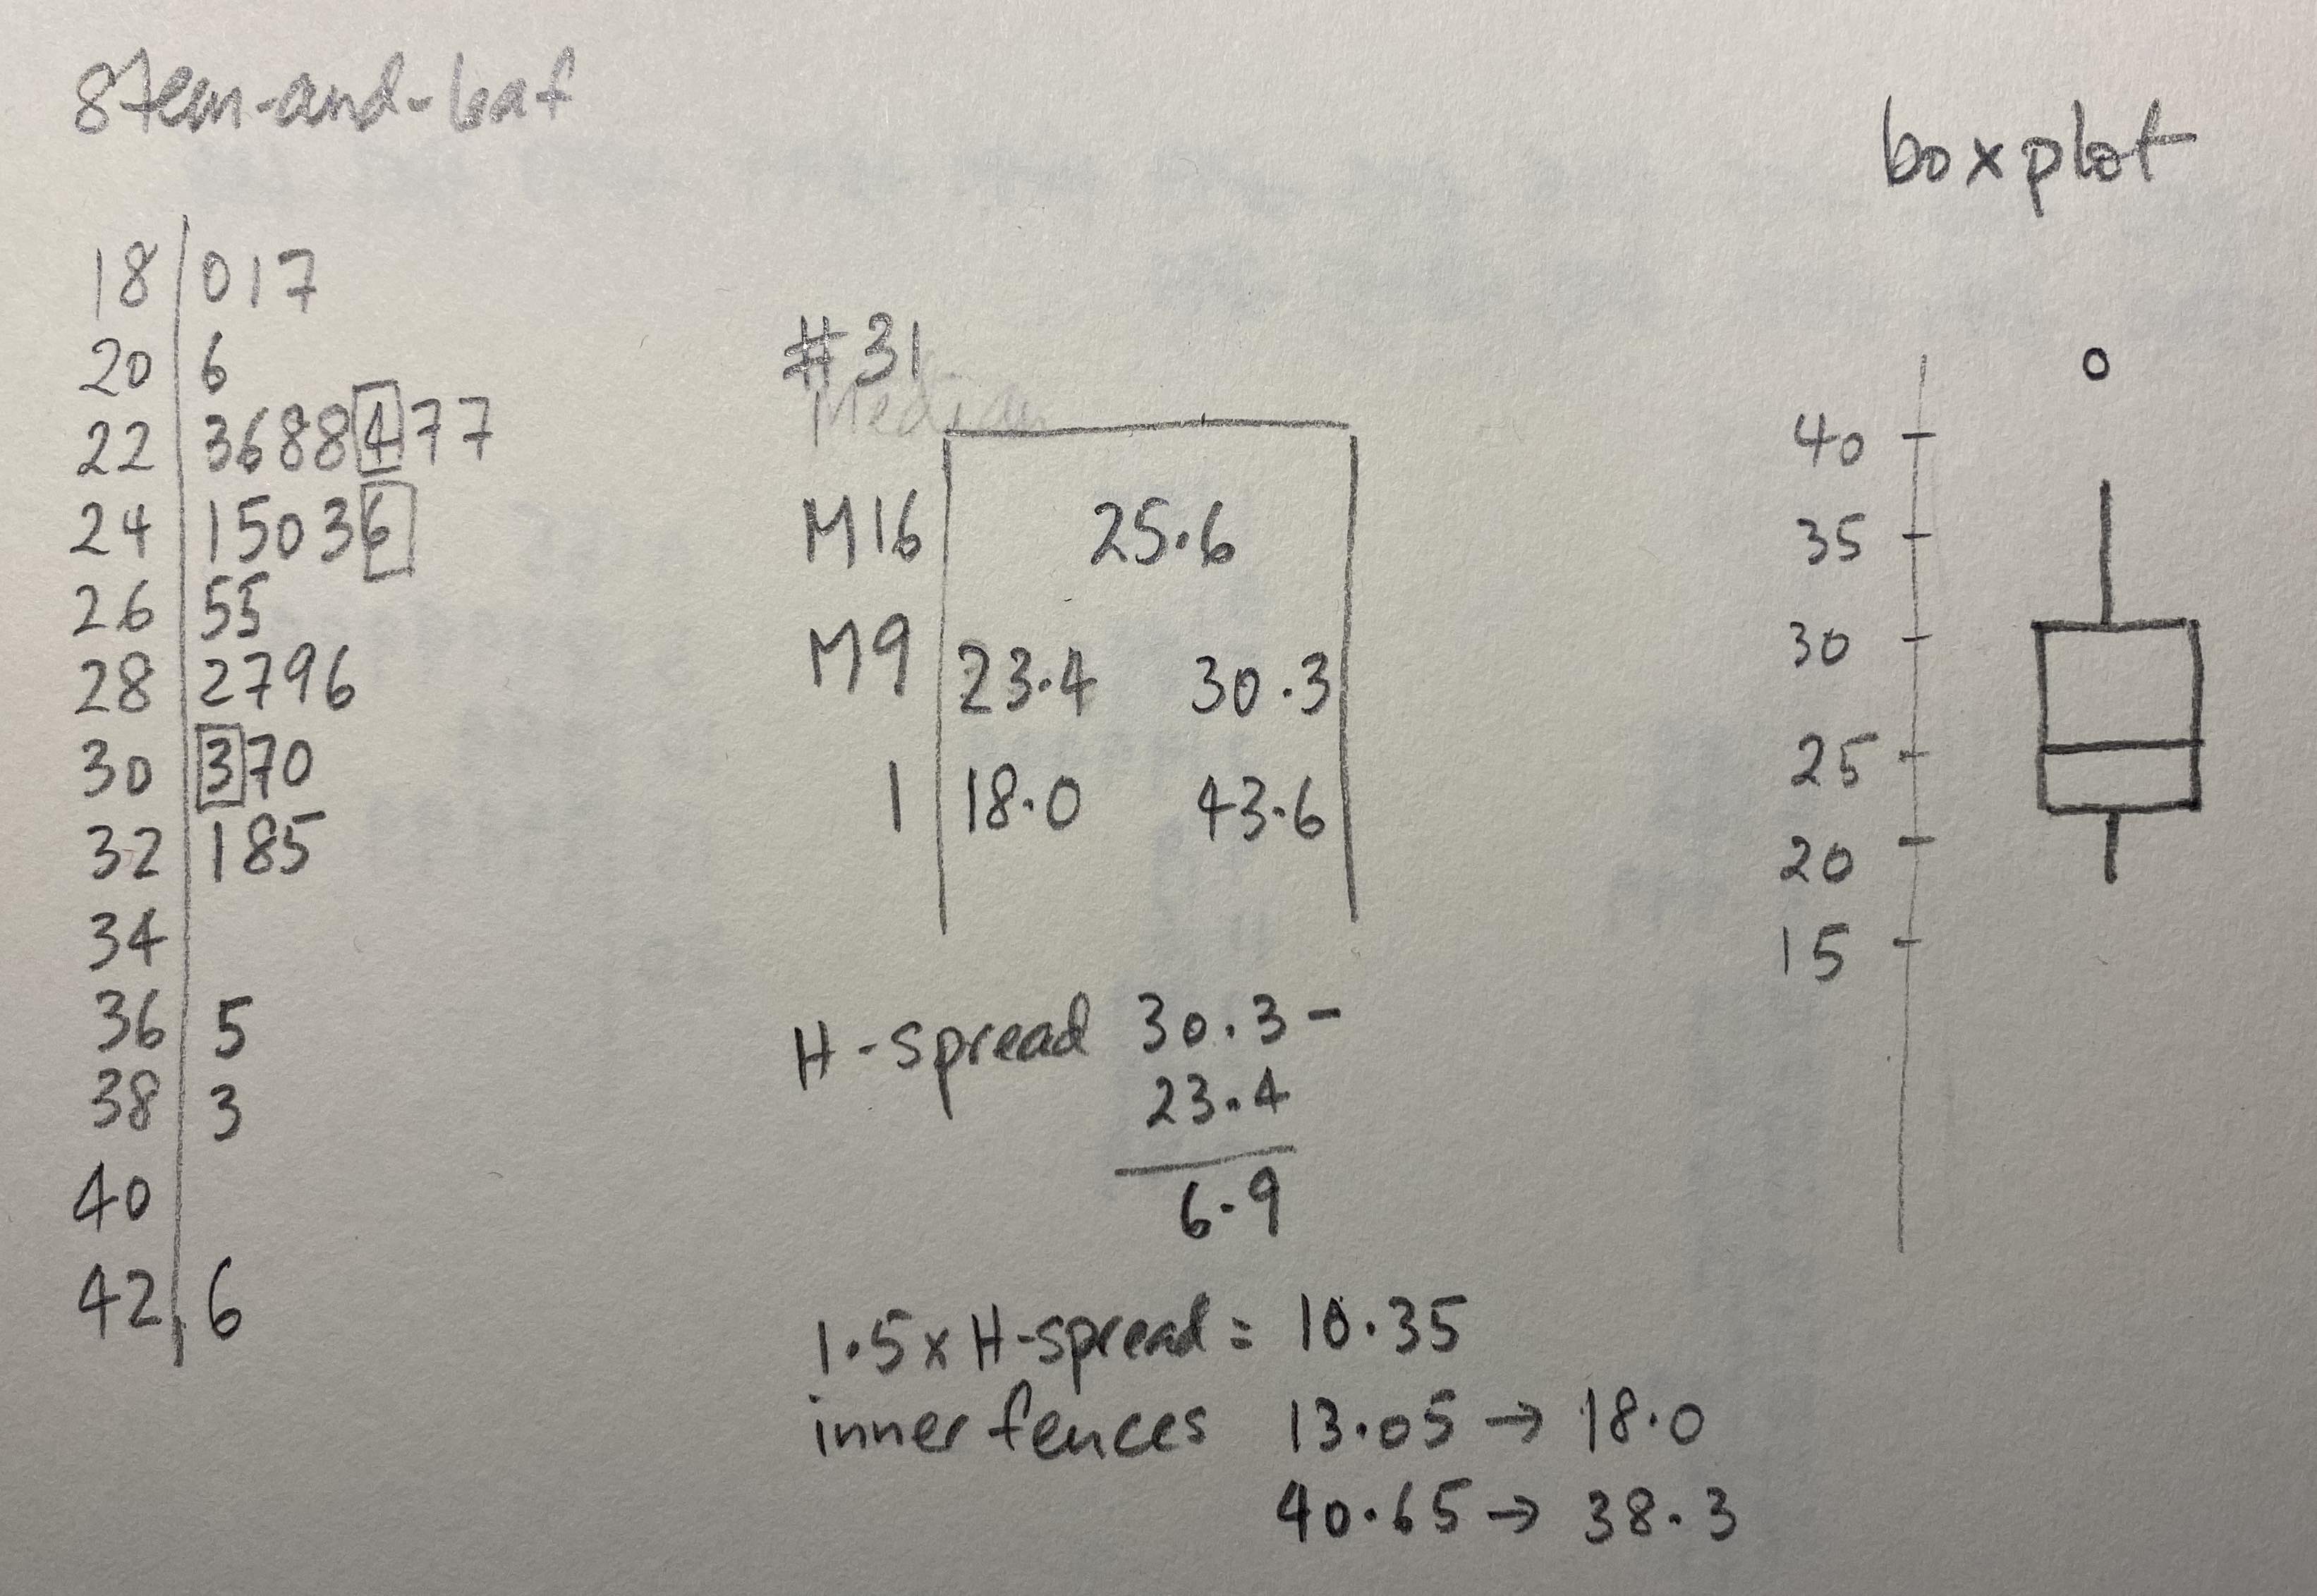 Stem-and-leaf
18 | 017
20 | 6
22 | 3688477
24 | 15036
26 | 55
28 | 2796
30 | 370
32 | 185
34 |
36 | 5
38 | 3
40 |
42 | 6
#31
Median
M16 25.6
M9 23.4 30.3
1 18.0 43.6
H-spread 30.3 -
23.4
6.9
1.5x H-spread = 10.35
inner fences 13.05 → 18.0
40.65 → 38.3
boxplot
40
35
30
25
20
15